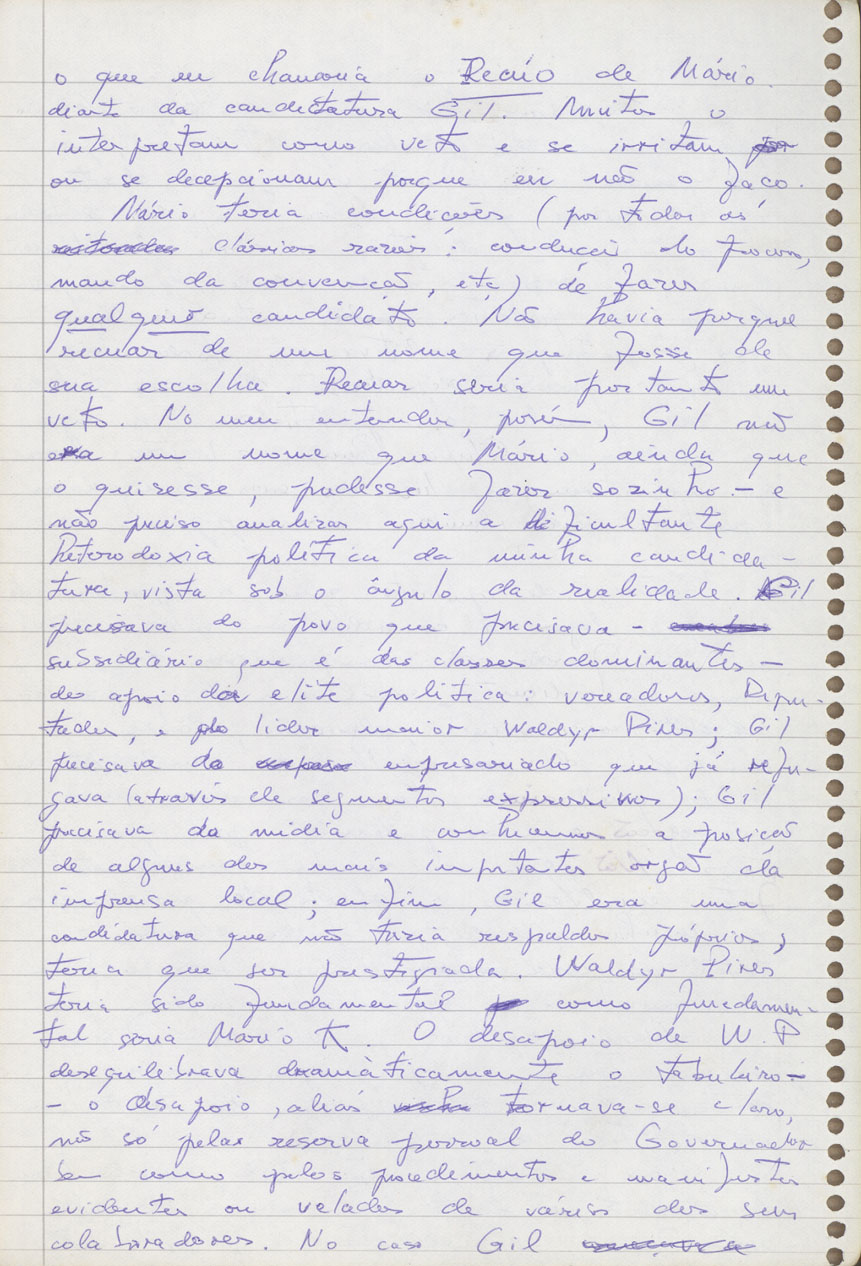 o que eu chamaria o Recúo de Mário
diante da candidatura Gil. Muitos o
interpretam como veto e se irritam
ou se decepcionam porque eu não o faço.
Mário teria condições (por todas as
clássicas razões: condução do processo,
mando da convenção, etc) de fazer
qualquer candidato. Não havia porque
recuar de um nome que fosse de
sua escolha. Recuar seria portanto um
veto. No meu entender, porém, Gil não
era um nome que Mário, ainda que
o quisesse, pudesse fazer sozinho. – e
não preciso analisar aqui a dificultante
heterodoxia política da minha candida-
tura, vista sob o ângulo da realidade. Gil
precisava do povo que precisava –
subsidiário que é das classes dominantes –
do apoio da elite política: vereadores, Depu-
tados, e do lider maior Waldyr Pires; Gil
precisava do empresariado que já refu-
gava (através de segmentos expressivos); Gil
precisava da mídia e conhecemos a posição
de alguns dos mais importantes orgão da
imprensa local; enfim, Gil era uma
candidatura que não teria respaldos próprios,
teria que ser prestigiada. Waldyr Pires
teria sido fundamental como fundamen-
tal seria Mário K. O desapoio de W.P
desequilibrava dramàticamente o tabuleiro –
– o desapoio, aliás tornava-se claro,
não só pela reserva pessoal do Governador
bem como pelos procedimentos e manifestos
evidentes ou velados de vários dos seus
colaboradores. No caso Gil